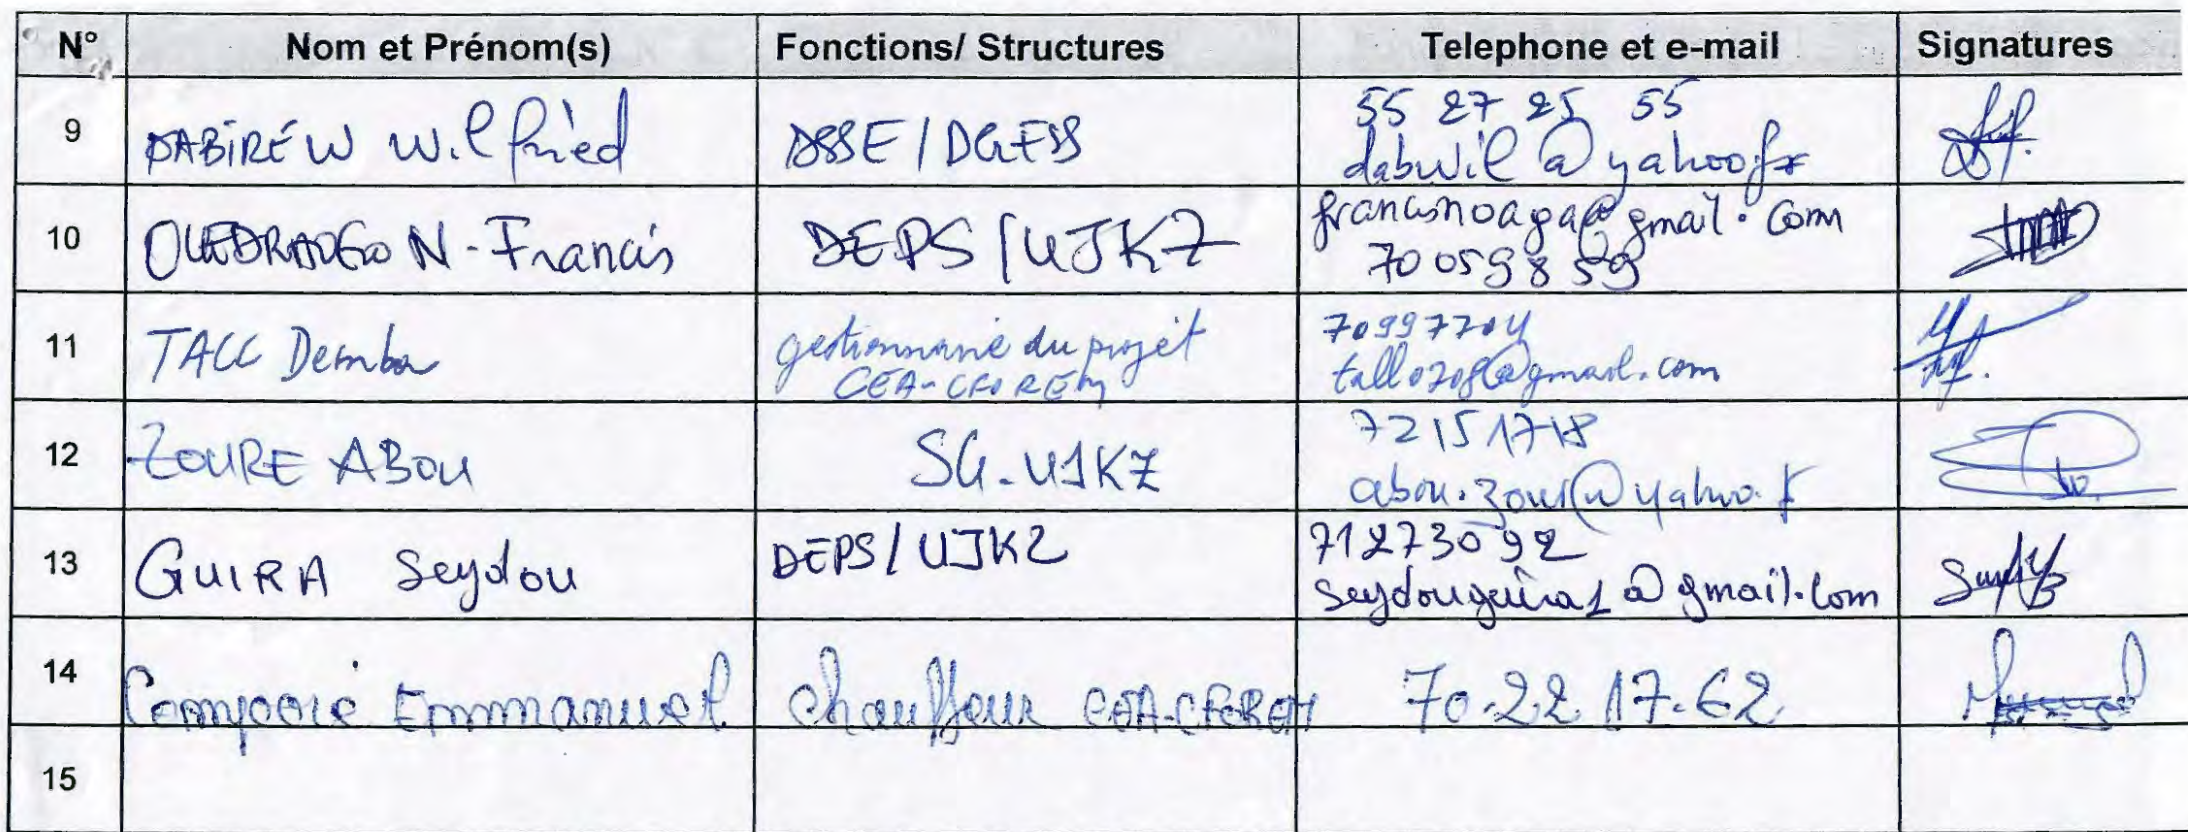 N° Nom et Prénom(s) Fonctions/ Structures Telephone et e-mail Signatures
9 DABIRÉ W Wilfried DSSE / DGESS 55 27 25 55
dabwil@yahoo.fr
10 OUEDRAOGO N-Francis DEPS/UJKZ francisnoaga@gmail.com
70059859
11 TALL Demba gestionnaire du projet 70997704
CEA-CFOREM tall0708@gmail.com
12 ZOURE ABOU SG-UJKZ 72151718
abou.zour@yahoo.f
13 GUIRA Seydou DEPS/UJKZ 71273092
seydouguira1@gmail.com
14 Compaoré Emmanuel Chauffeur CEA-CFOREM 70-22 17-62
15